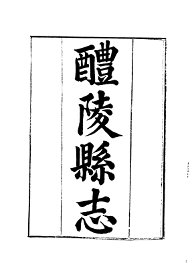 醴陵縣志